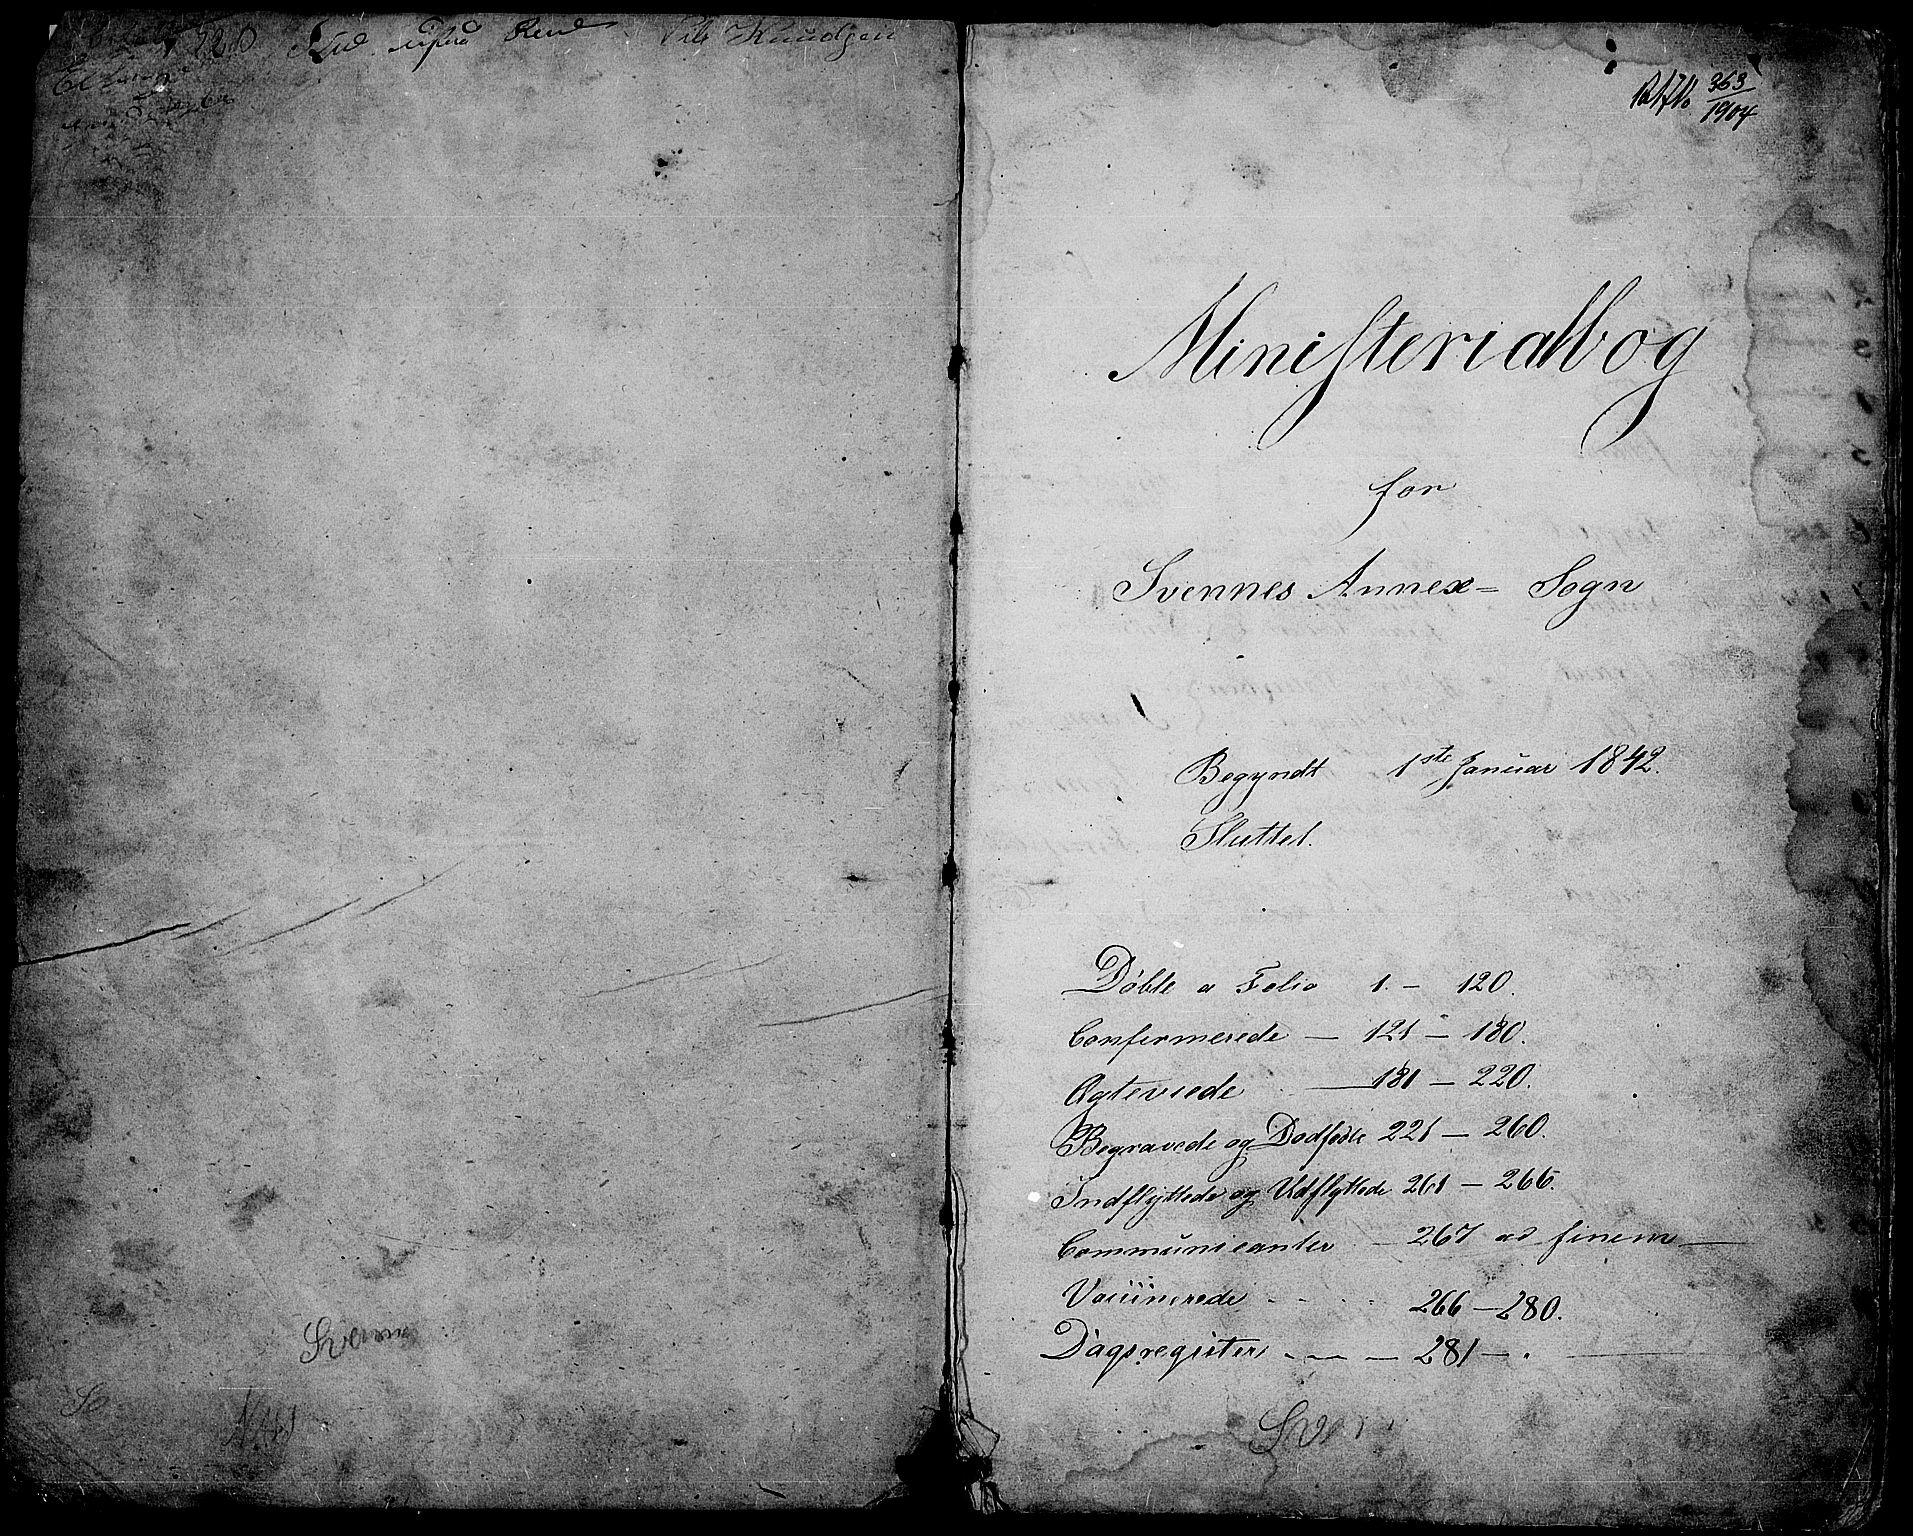 220
Nils Knudsen
363
1904
Ministerialbog
for
Svennes Annex- Sogn
Begyndt 1ste Januar 1842.
Sluttet.
Døbte a Folio 1. - 120.
Confirmerede - 121 - 180.
Ægteviede - 181 - 220.
Begravede og Dødfødte 221 - 260.
Indflyttede og Udflyttede 261 - 266.
Communicanter - 267 ad finem
Vaccinerede - - - 266 - 280.
Dagsregister - - - 281 - .
Svenn
S
Sv